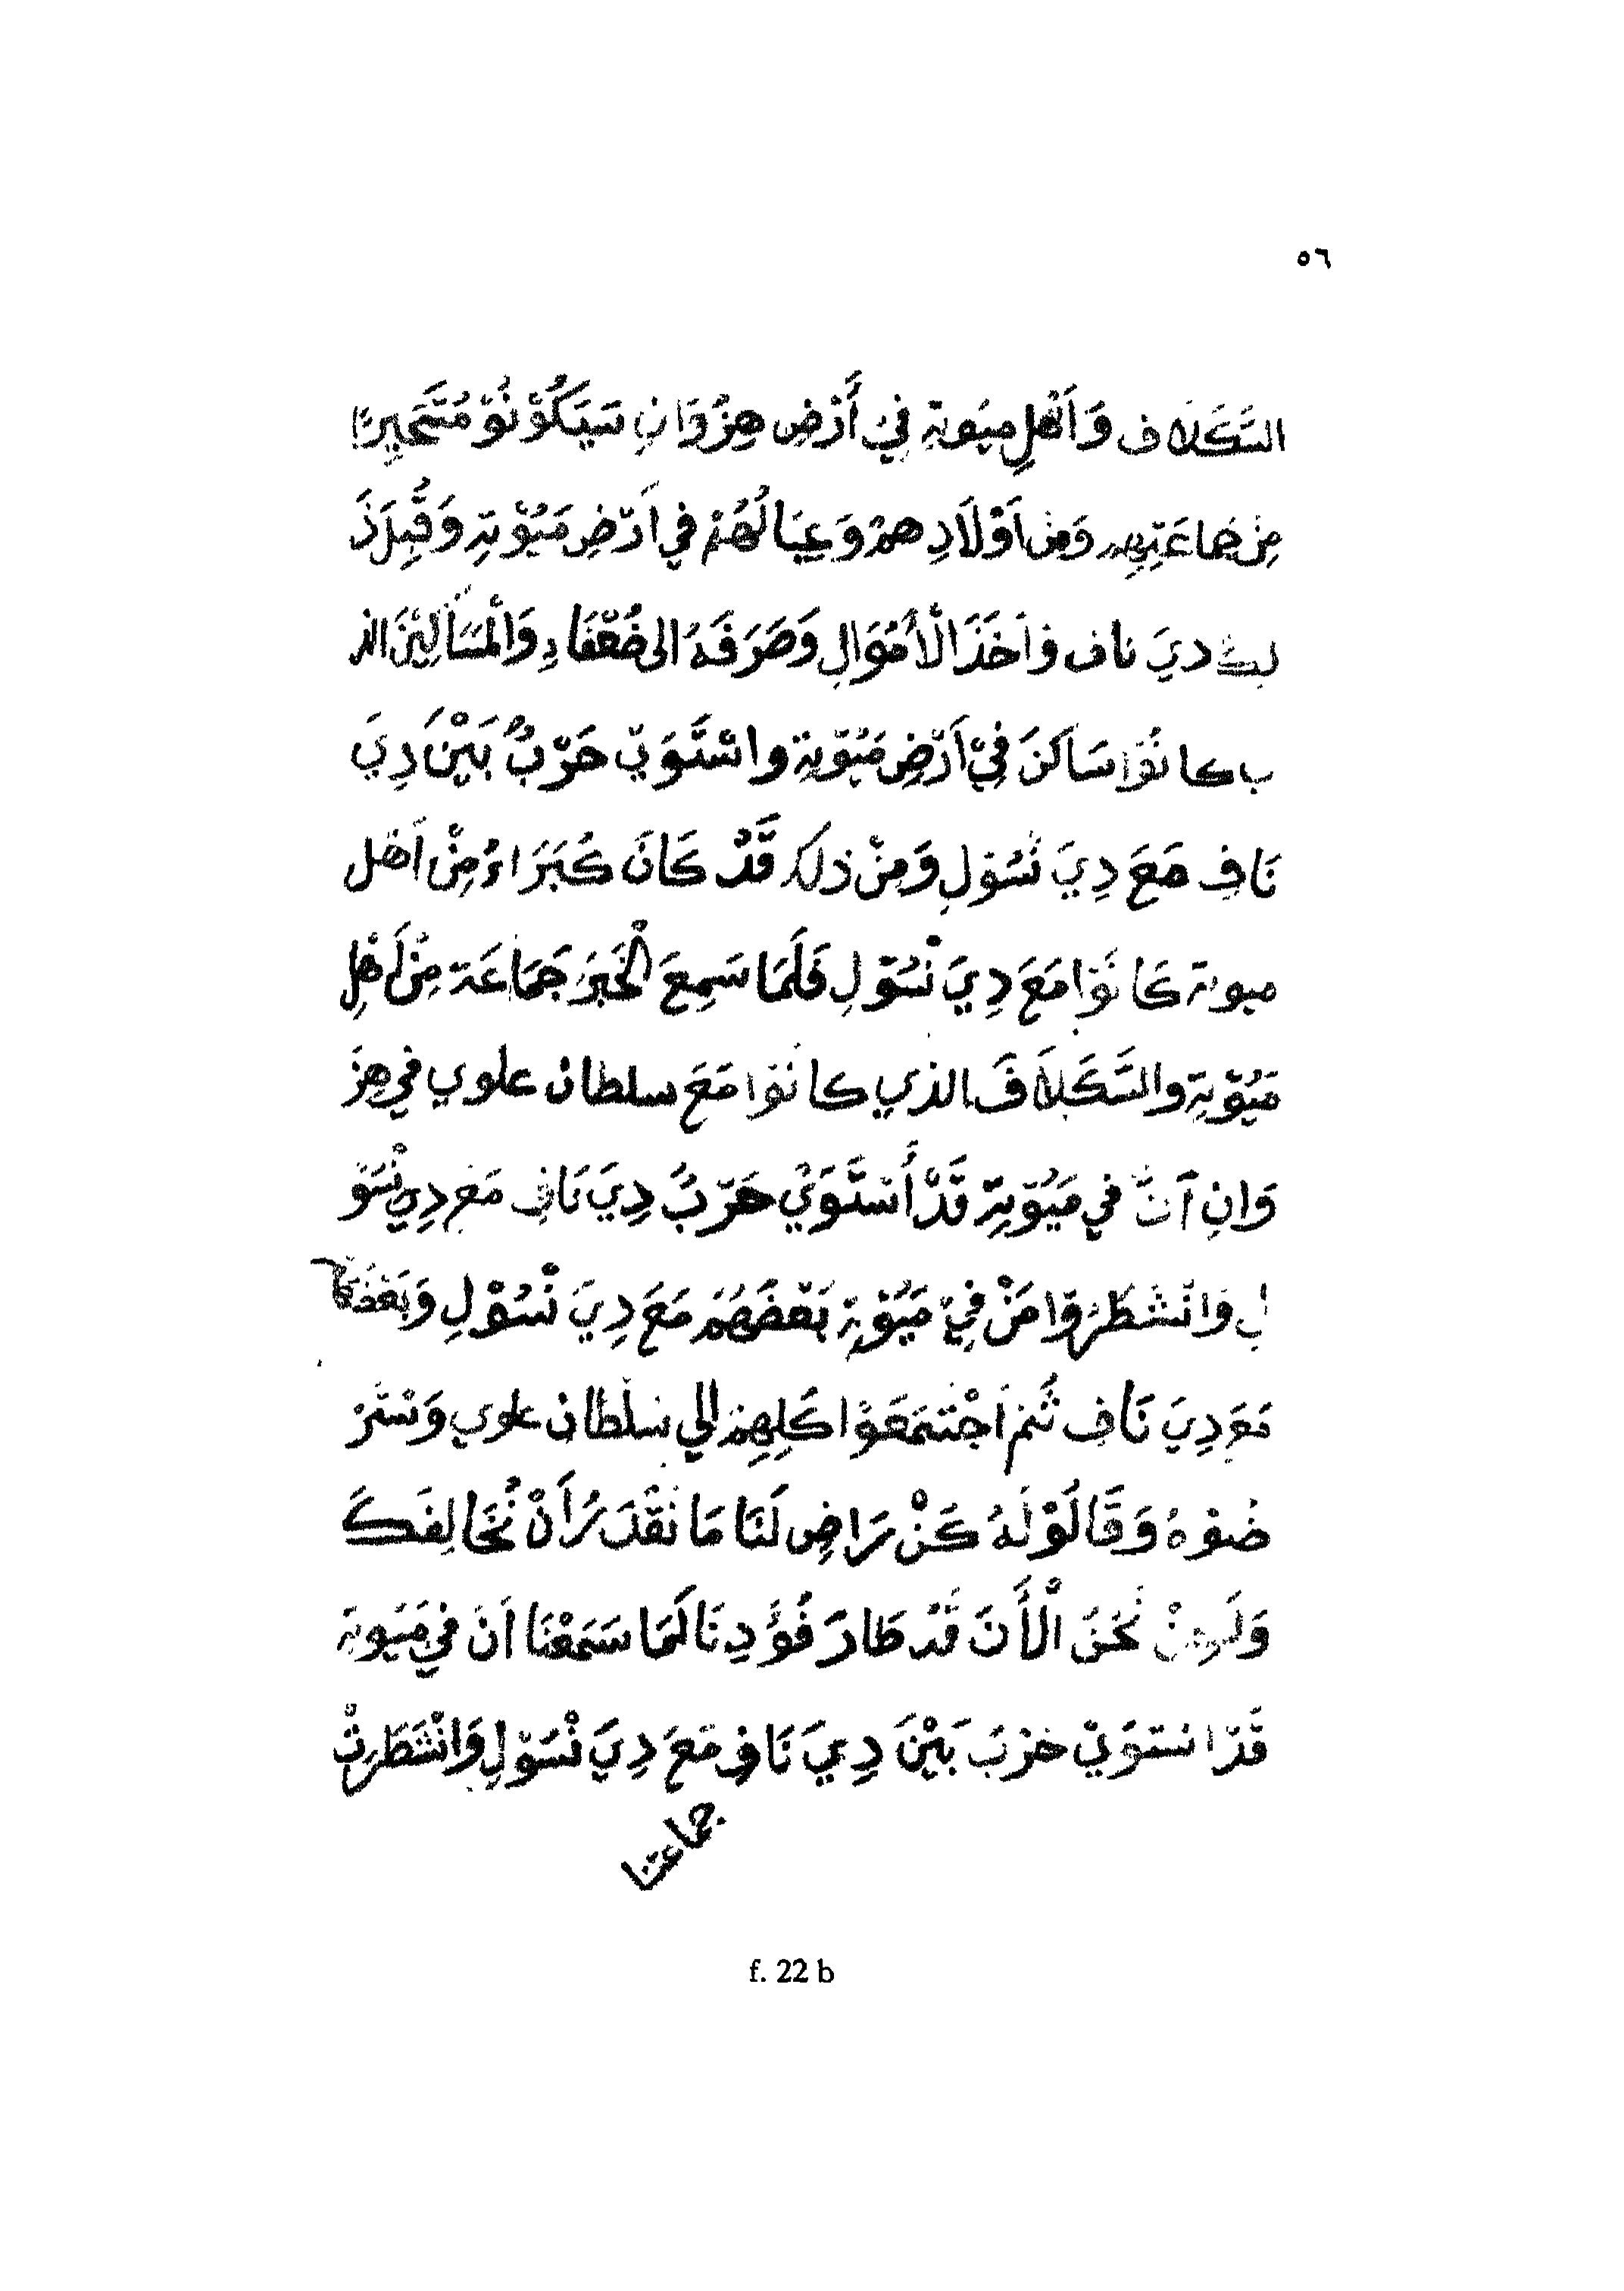 ٥٦
السَّكَلَاف وَاَهْلِ مِيُوتِة فِيْ أَرْضِ هِزُوَانِ سَيَكُوْنُوْ مُتَحَيِرِنَا
مِنْ جَمَاعَتِهِمْ وَمِنْ اَوْلَادِ هِمْ وَعِيَالُهُمْ فِي اَرْضِ مَيُوْتِةِ وَقُبِلَ ذَ
لِكَ دِيَ نَاف وَاَخَذَ الْاَمْوَالِ وَصَرَفَهُ الى ضُعْفَاءِ وَالْمَسَالِيْنَ الذ
ب كَانُوْا سَاكَنَ فِيْ اَرْضِ مَيُوْتِة وَاسْتَوَيْ حَرْبٌ بَيْنَ دِيَ
نَافِ مَعَ دِيَ نْسُوْلِ وَمِنْ ذلك قَدْ كَانَ كُبَرَاءُ مِنْ اَهْل
ميوتة كَانُوْا مَعَ دِيَ نْسُوْلِ فَلَمَا سَمِعَ الْخَبَرَ جَمَاعَة مِنْ اَهْلِ
مَيُوْتِة والسَّكَلَافَ الذي كانُوْا مَعَ سلطان علوي في هِزَ
وَانِ اَنَّ فِي مَيُوْتِة قَدْ أَسْتَوَيْ حَرْبٌ دِيَ نَافِ مَعَ دِيَ نْسُوْ
لِ وَانْشَطَرُوْا مَنْ فِيْ مَيُوْتِة بَعْضَهُمْ مَعَ دِيَ نْسُوْلِ وَبَعْضُهَا
مَعَ دِيَ نَافِ ثُمَ اَجْتَمَعَوْا كَلِهِمْ الي سُلْطان علوي وَسْتَرْ
ضُوْهُ وَقَالُوْ لَهُ كَنْ رَاضِ لَنَا مَا نَقْدَرُ أَنْ نُخَالِفَكَ
وَلَكِنْ نَحْنَ الْأَنَ قَدْ طَارَ فُؤَدِنَا لَمَا سَمَعْنَا اَنَ فِي مَيُوتة
قَدْ اسْتَوَيْ حَرْبَ بَيْنَ دِيَ نَافِ مَعَ دِيَ نْسُوْلِ وَانْشَطَرِتْ
جماعتنا
f. 22 b